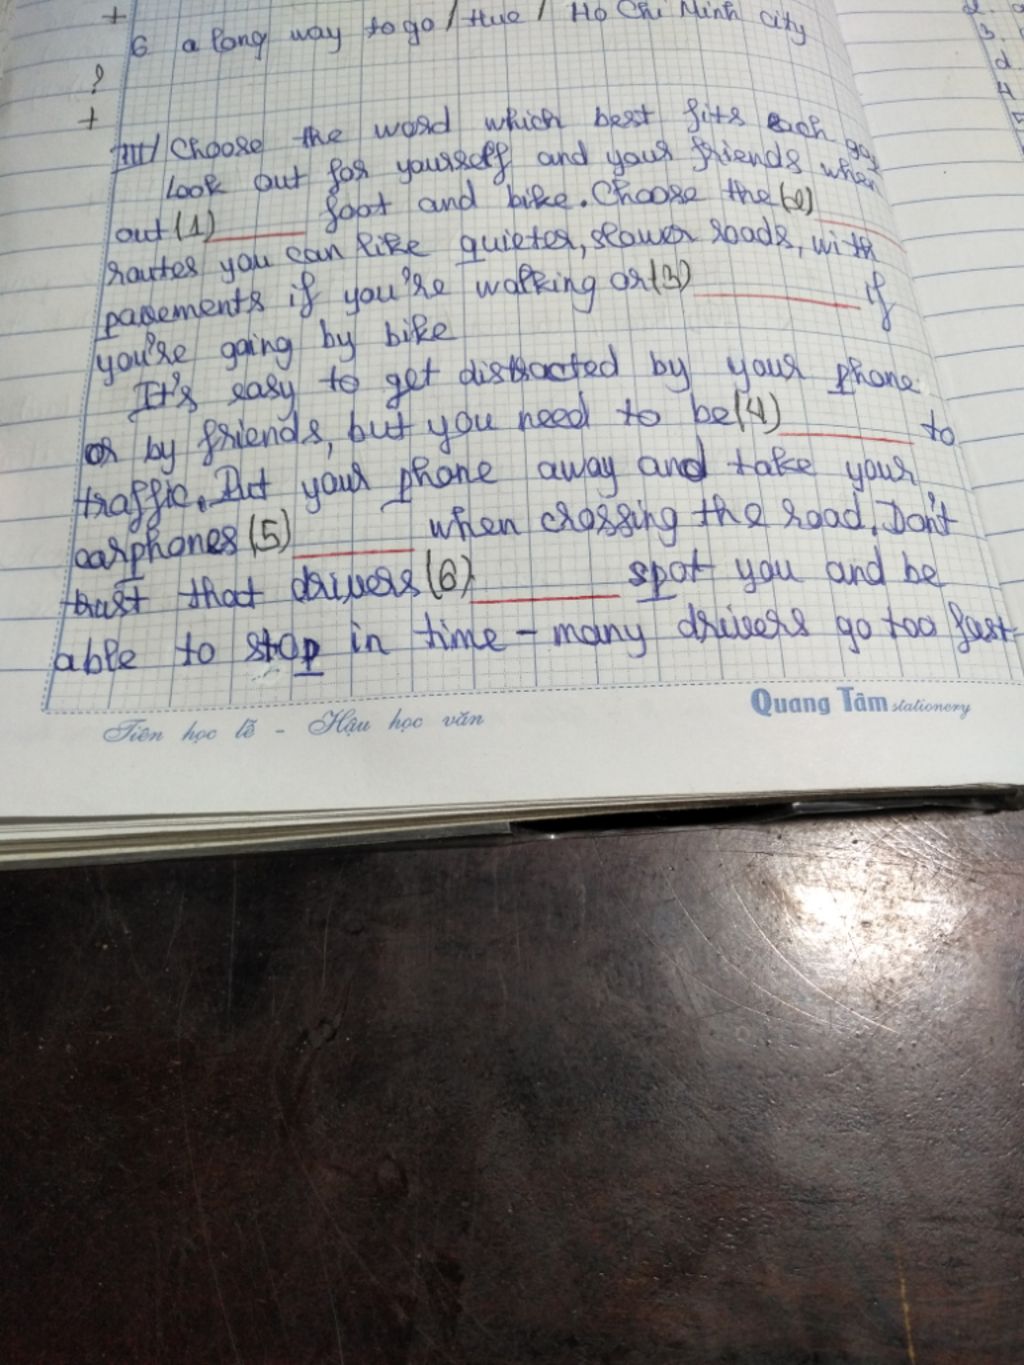 +
6 a long way to go / Hue / Ho Chi Minh city
?
+
III/ Choose the word which best fits each
Look out for yourself and your friends when
out (1)______ foot and bike. Choose the (2)______
routes you can like quieter, slower roads, with
pavements if you're walking or (3)______ if
you're going by bike
It's easy to get distracted by your phone
or by friends, but you need to be (4)______ to
traffic. Put your phone away and take your
earphones (5)______ when crossing the road. Don't
trust that drivers (6)______ spot you and be
able to stop in time - many drivers go too fast
Tiên học lễ - Hậu học văn
Quang Tâm stationery
2.
3.
d
4